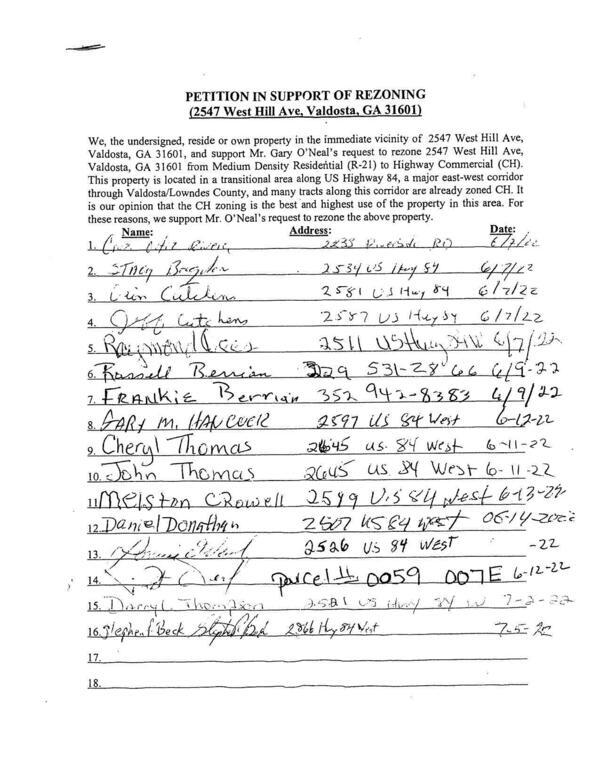 PETITION IN SUPPORT OF REZONING
(2547 West Hill Ave, Valdosta, GA 31601)
We, the undersigned, reside or own property in the immediate vicinity of 2547 West Hill Ave,
Valdosta, GA 31601, and support Mr. Gary O'Neal's request to rezone 2547 West Hill Ave,
Valdosta, GA 31601 from Medium Density Residential (R-21) to Highway Commercial (CH).
This property is located in a transitional area along US Highway 84, a major east-west corridor
through Valdosta/Lowndes County, and many tracts along this corridor are already zoned CH. It
is our opinion that the CH zoning is the best and highest use of the property in this area. For
these reasons, we support Mr. O'Neal's request to rezone the above property.
Name: Address: Date:
1. Riverside RD 6/7/22
2. Stacy 2534 US Hwy 84 6/7/22
3. Erin Cutchens 2581 US Hwy 84 6/7/22
4. Jeff Cutchens 2587 US Hwy 84 6/7/22
5. Raymond 2511 US Hwy 84W 6/7/22
6. Russell Berrian 229 531-2866 6/9-22
7. FRANKIE Berrian 352 942-8383 6/9/22
8. GARY M. HANCOCK 2597 US 84 West 6-12-22
9. Cheryl Thomas 2645 US. 84 West 6-11-22
10. John Thomas 2645 US 84 West 6-11-22
11. Melston CRowell 2599 U.S 84 West 6-13-22
12. Daniel Donathan 2507 US 84 West 06-14-2022
13. 2526 US 84 West -22
14. parcel # 0059 007E 6-12-22
15. Darryl Thompson 2581 US Hwy 84 W 7-2-22
16. Stephen F Beck 2866 Hwy 84 West 7-5-22
17.
18.